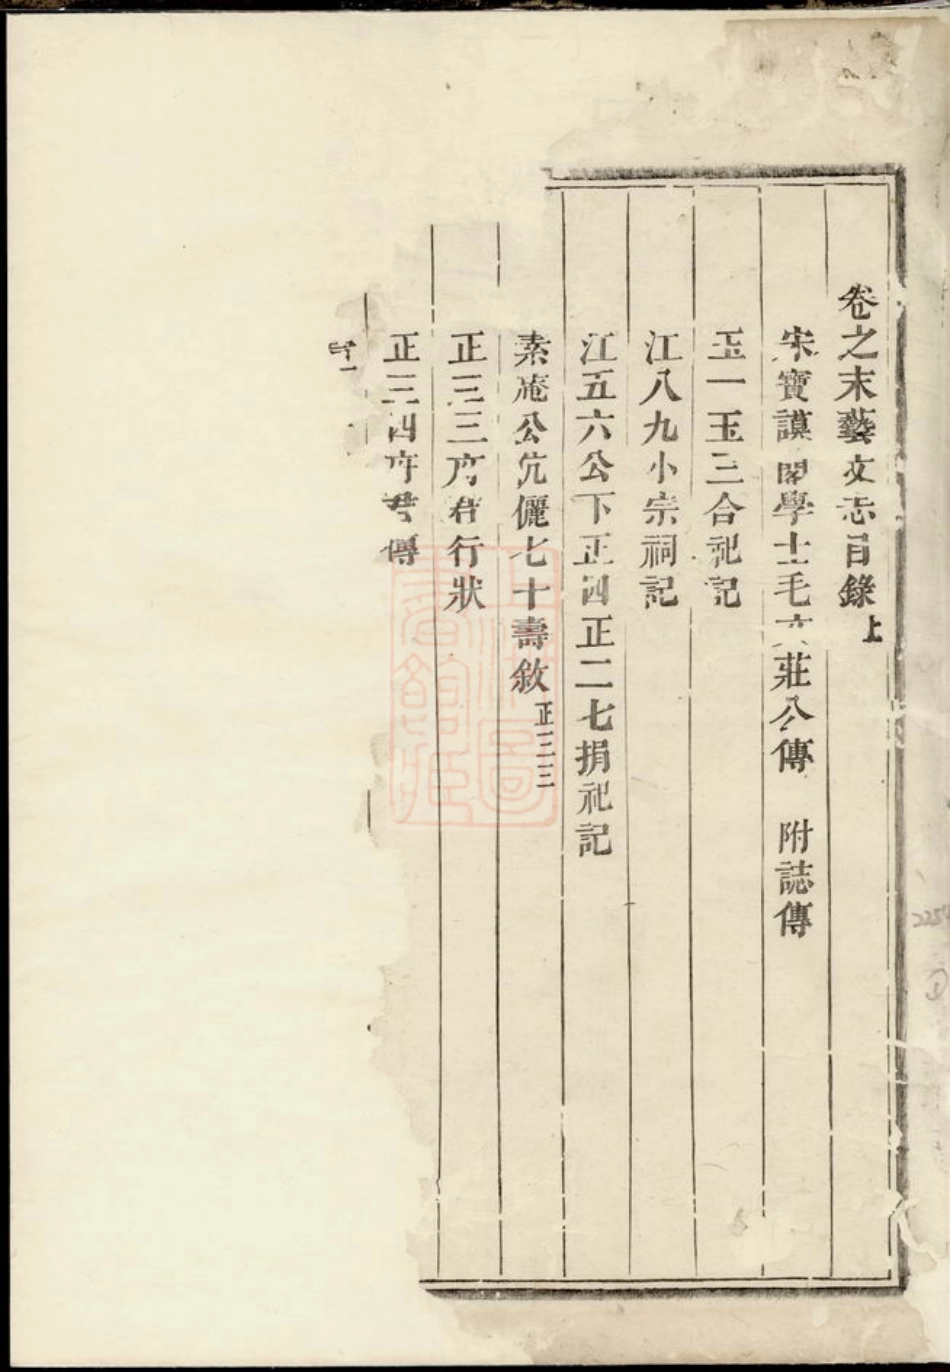 卷之末藝文志目錄上
宋寶謨閣學士毛文莊公傳 附誌傳
玉一玉三合祀記
江八九小宗祠記
江五六公下正四正二七捐祀記
素庵公伉儷七十壽敘正三三
正三三府君行狀
正三四府君傳
上海圖書館藏